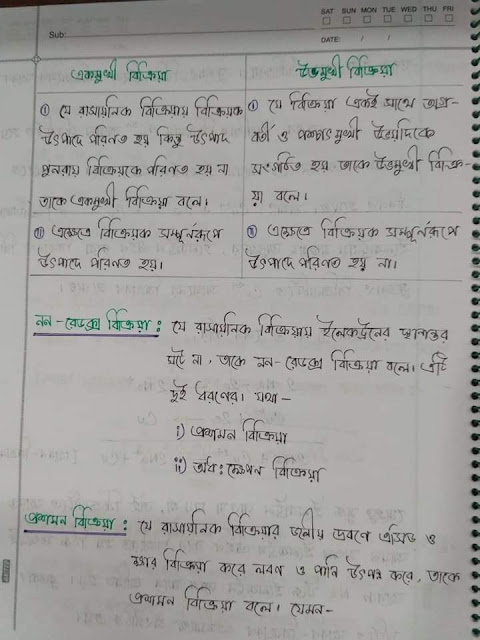 SAT SUN MON TUE WED THU FRI
Sub:
DATE: / /
একমুখী বিক্রিয়া
উভমুখী বিক্রিয়া
① যে রাসায়নিক বিক্রিয়ায় বিক্রিয়ক
উৎপাদে পরিণত হয় কিন্তু উৎপাদ
পুনরায় বিক্রিয়কে পরিণত হয় না
তাকে একমুখী বিক্রিয়া বলে।
① যে বিক্রিয়া একই সাথে অগ্র-
বর্তী ও পশ্চাৎমুখী উভয়দিকে
সংগঠিত হয় তাকে উভমুখী বিক্রি-
য়া বলে।
⑪ এক্ষেত্রে বিক্রিয়ক সম্পূর্নরূপে
উৎপাদে পরিণত হয়।
⑪ এক্ষেত্রে বিক্রিয়ক সম্পূর্নরূপে
উৎপাদে পরিণত হয় না।
নন-রেডক্স বিক্রিয়া : যে রাসায়নিক বিক্রিয়ায় ইলেকট্রনের স্থানান্তর
ঘটে না, তাকে নন-রেডক্স বিক্রিয়া বলে। এটি
দুই ধরণের। যথা-
i) প্রশমন বিক্রিয়া
ii) অধঃক্ষেপন বিক্রিয়া
প্রশমন বিক্রিয়া : যে রাসায়নিক বিক্রিয়ার জলীয় দ্রবণে এসিড ও
ক্ষার বিক্রিয়া করে লবণ ও পানি উৎপন্ন করে, তাকে
প্রশমন বিক্রিয়া বলে। যেমন-